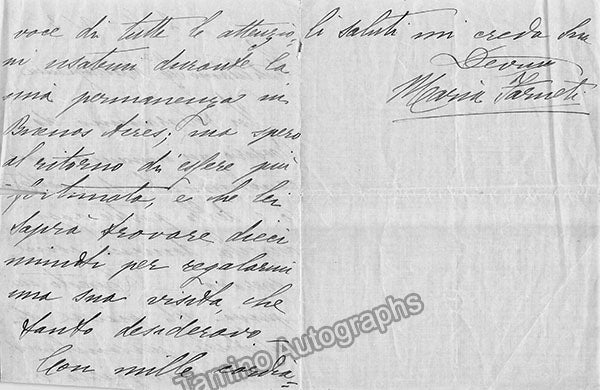 voce di tutte le attenzio-
ni usatemi durante la
mia permanenza in
Buenos Aires; ma spero
al ritorno di essere più
fortunata, e che lei
saprà trovare dieci
minuti per regalarmi
una sua visita, che
tanto desideravo
Con mille cordia=
li saluti mi creda Sua
Devma
Maria Farneti
Tamino Autographs